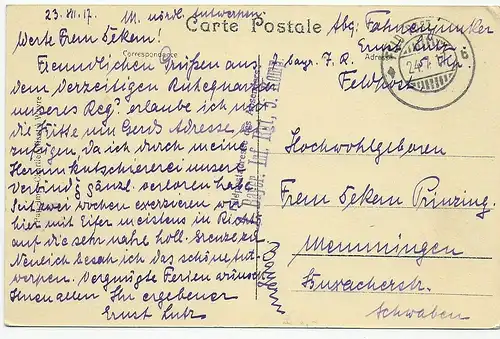 23. VII. 17. M. nördl. Antwerpen.
Carte Postale
Correspondance
Adresse
Abs: Fahnenjunker
Ernst Lutz
bayr. J. R.
Feldpost
Werte Frau Dekan!
Freundlichen Grüßen aus
dem derzeitigen Ruhequartier
unseres Reg. erlaube ich mir
die Bitte um Gerds Adresse
zufügen, da ich durch meine
Herumkutschiererei unsere
Verbindg gänzl. verloren habe.
Seit zwei Wochen exerzieren wir
hier mit Eifer meistens in Richtg
auf die sehr nahe holl. Grenze zu.
Neulich besah ich das schöne Ant-
werpen. Vergnügte Ferien wünscht
Ihnen allen Ihr ergebener
Ernst Lutz
Hochwohlgeboren
Frau Dekan Prinzing.
Memmingen
Buxacherstr.
Schwaben
Bayern